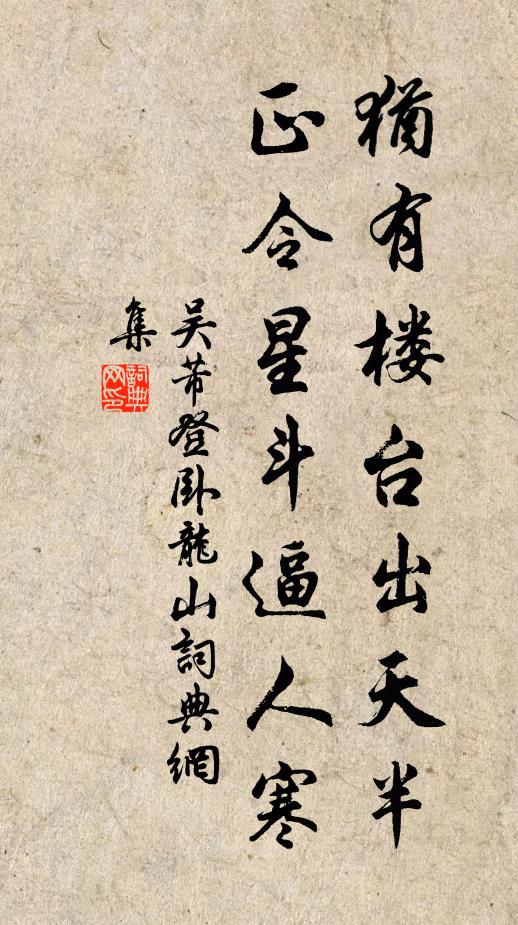 猶有楼台出天半
正令星斗逼人寒
吴芾登卧龍山詞典網
集
詞典網印